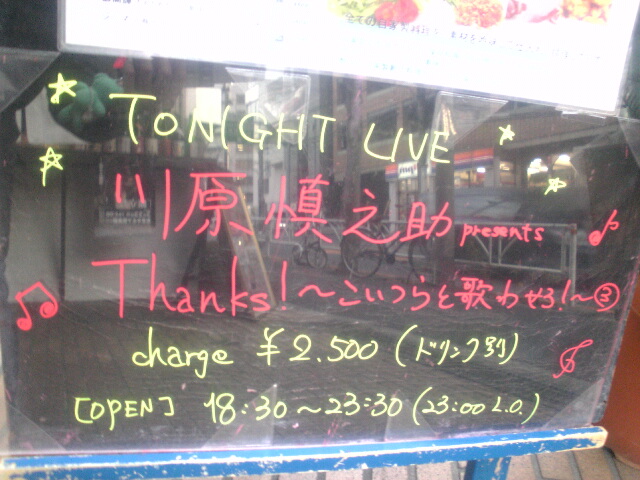 TONIGHT LIVE
川原慎之助 presents
Thanks!～こいつらと歌わせろ!～③
charge ¥2.500 (ドリンク別)
[OPEN] 18:30～23:30 (23:00 L.O.)